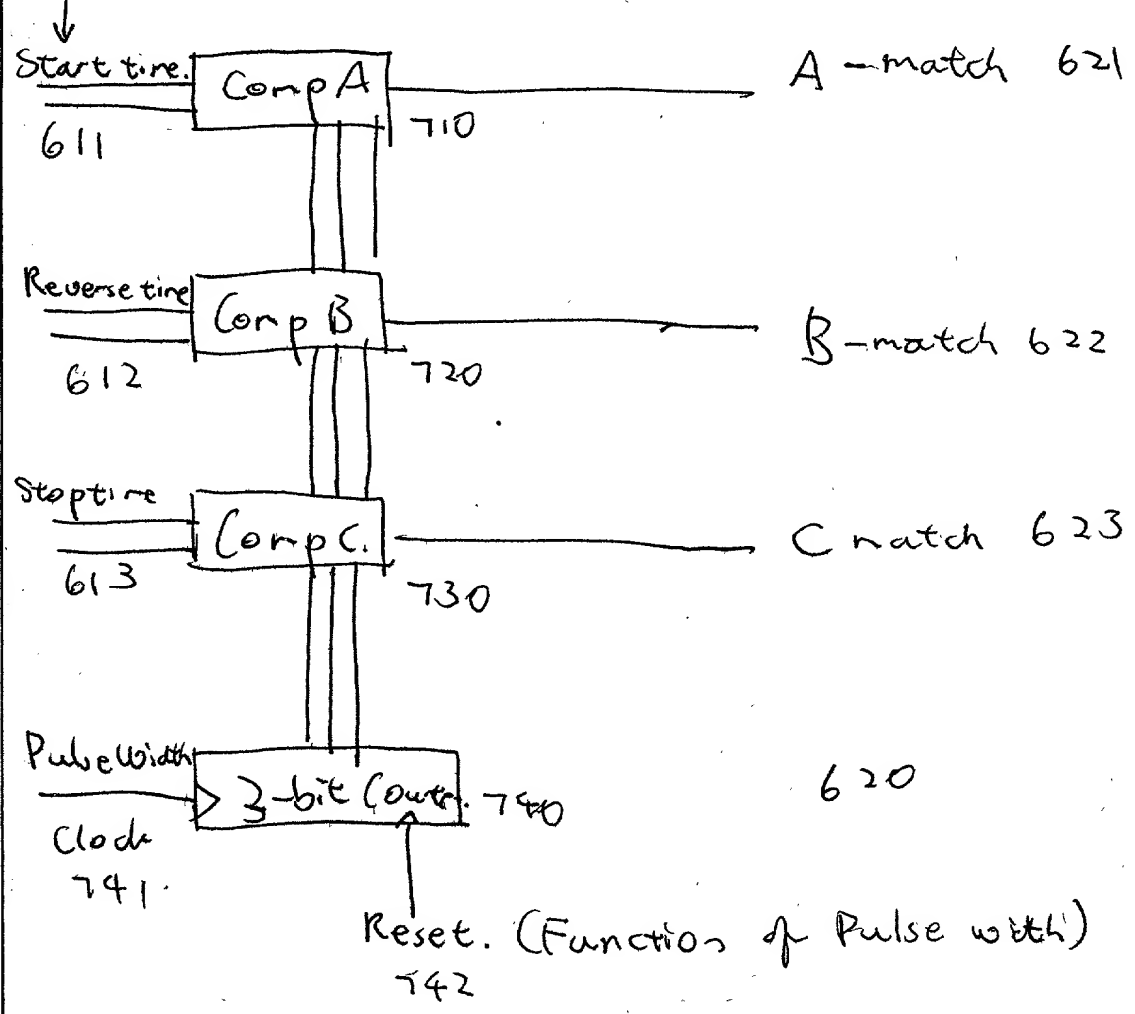 Start time.
Comp A
A-match 621
611
710
Reverse time
Comp B
B-match 622
612
720
Stop time
Comp C.
C match 623
613
730
Pulse Width
3-bit Countr.
740
620
Clock
741.
Reset. (Function of Pulse width)
742